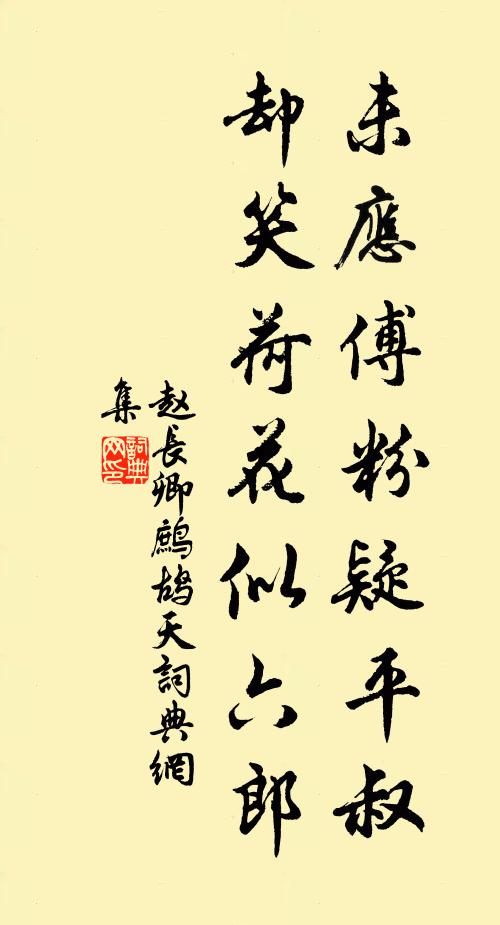 未應傅粉疑平叔
却笑荷花似六郎
赵長卿鷓鴣天詞典網
集
詞典網印